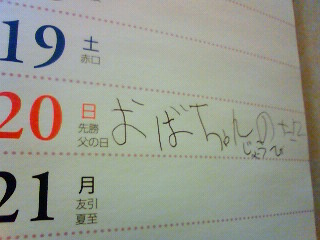 19 土
赤口
20 日 おばちゃんの
先勝
父の日
じょうび
21 月
友引
夏至